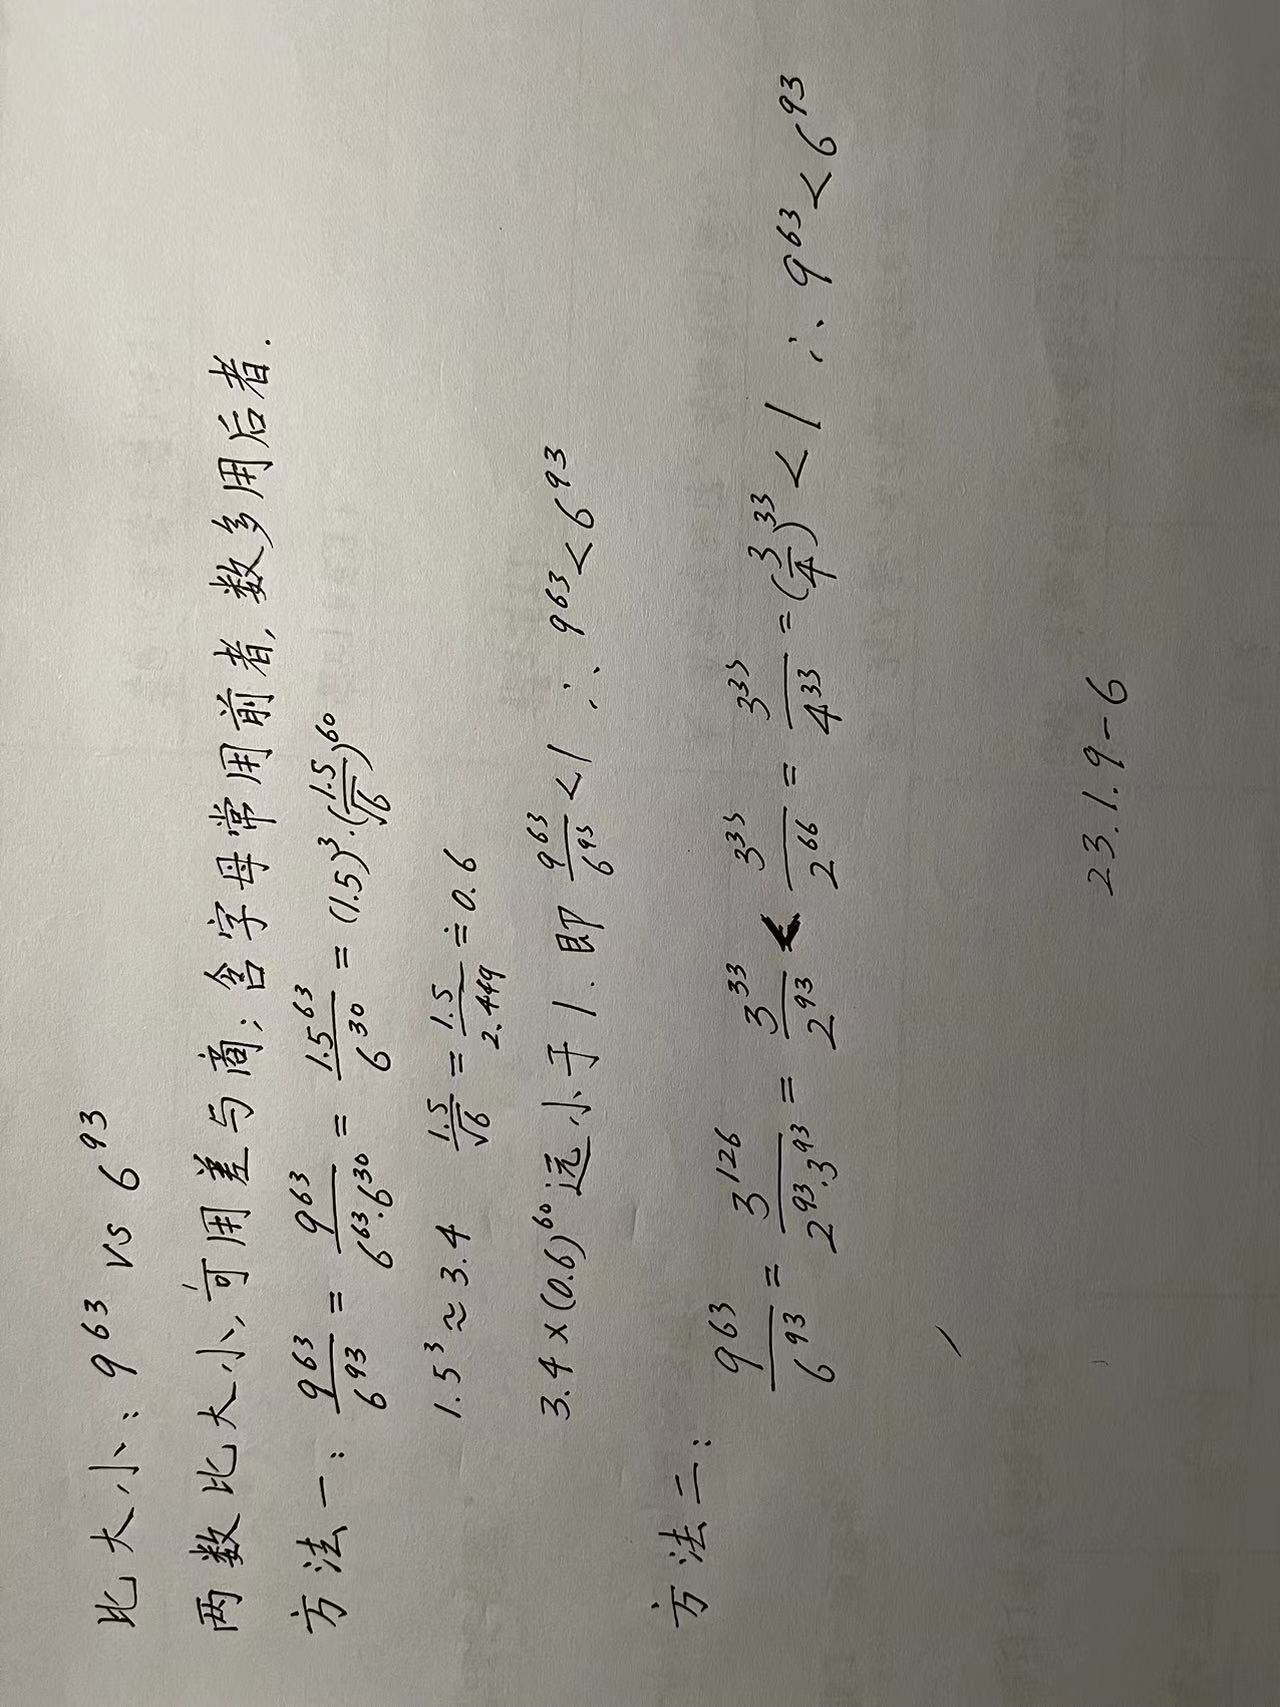 比大小: 9^63 vs 6^93
两数比大小,可用差与商;含字母常用前者,数多用后者.
方法一: 9^63/6^93 = 9^63/(6^63·6^30) = 1.5^63/6^30 = (1.5)^3·(1.5/√6)^60
1.5^3≈3.4 1.5/√6 = 1.5/2.449 ≐ 0.6
3.4×(0.6)^60 远小于1. 即 9^63/6^93 <1 ∴ 9^63<6^93
方法二:
9^63/6^93 = 3^126/(2^93·3^93) = 3^33/2^93 < 3^33/2^66 = 3^33/4^33 = (3/4)^33 < 1 ∴ 9^63<6^93
23.1.9-6